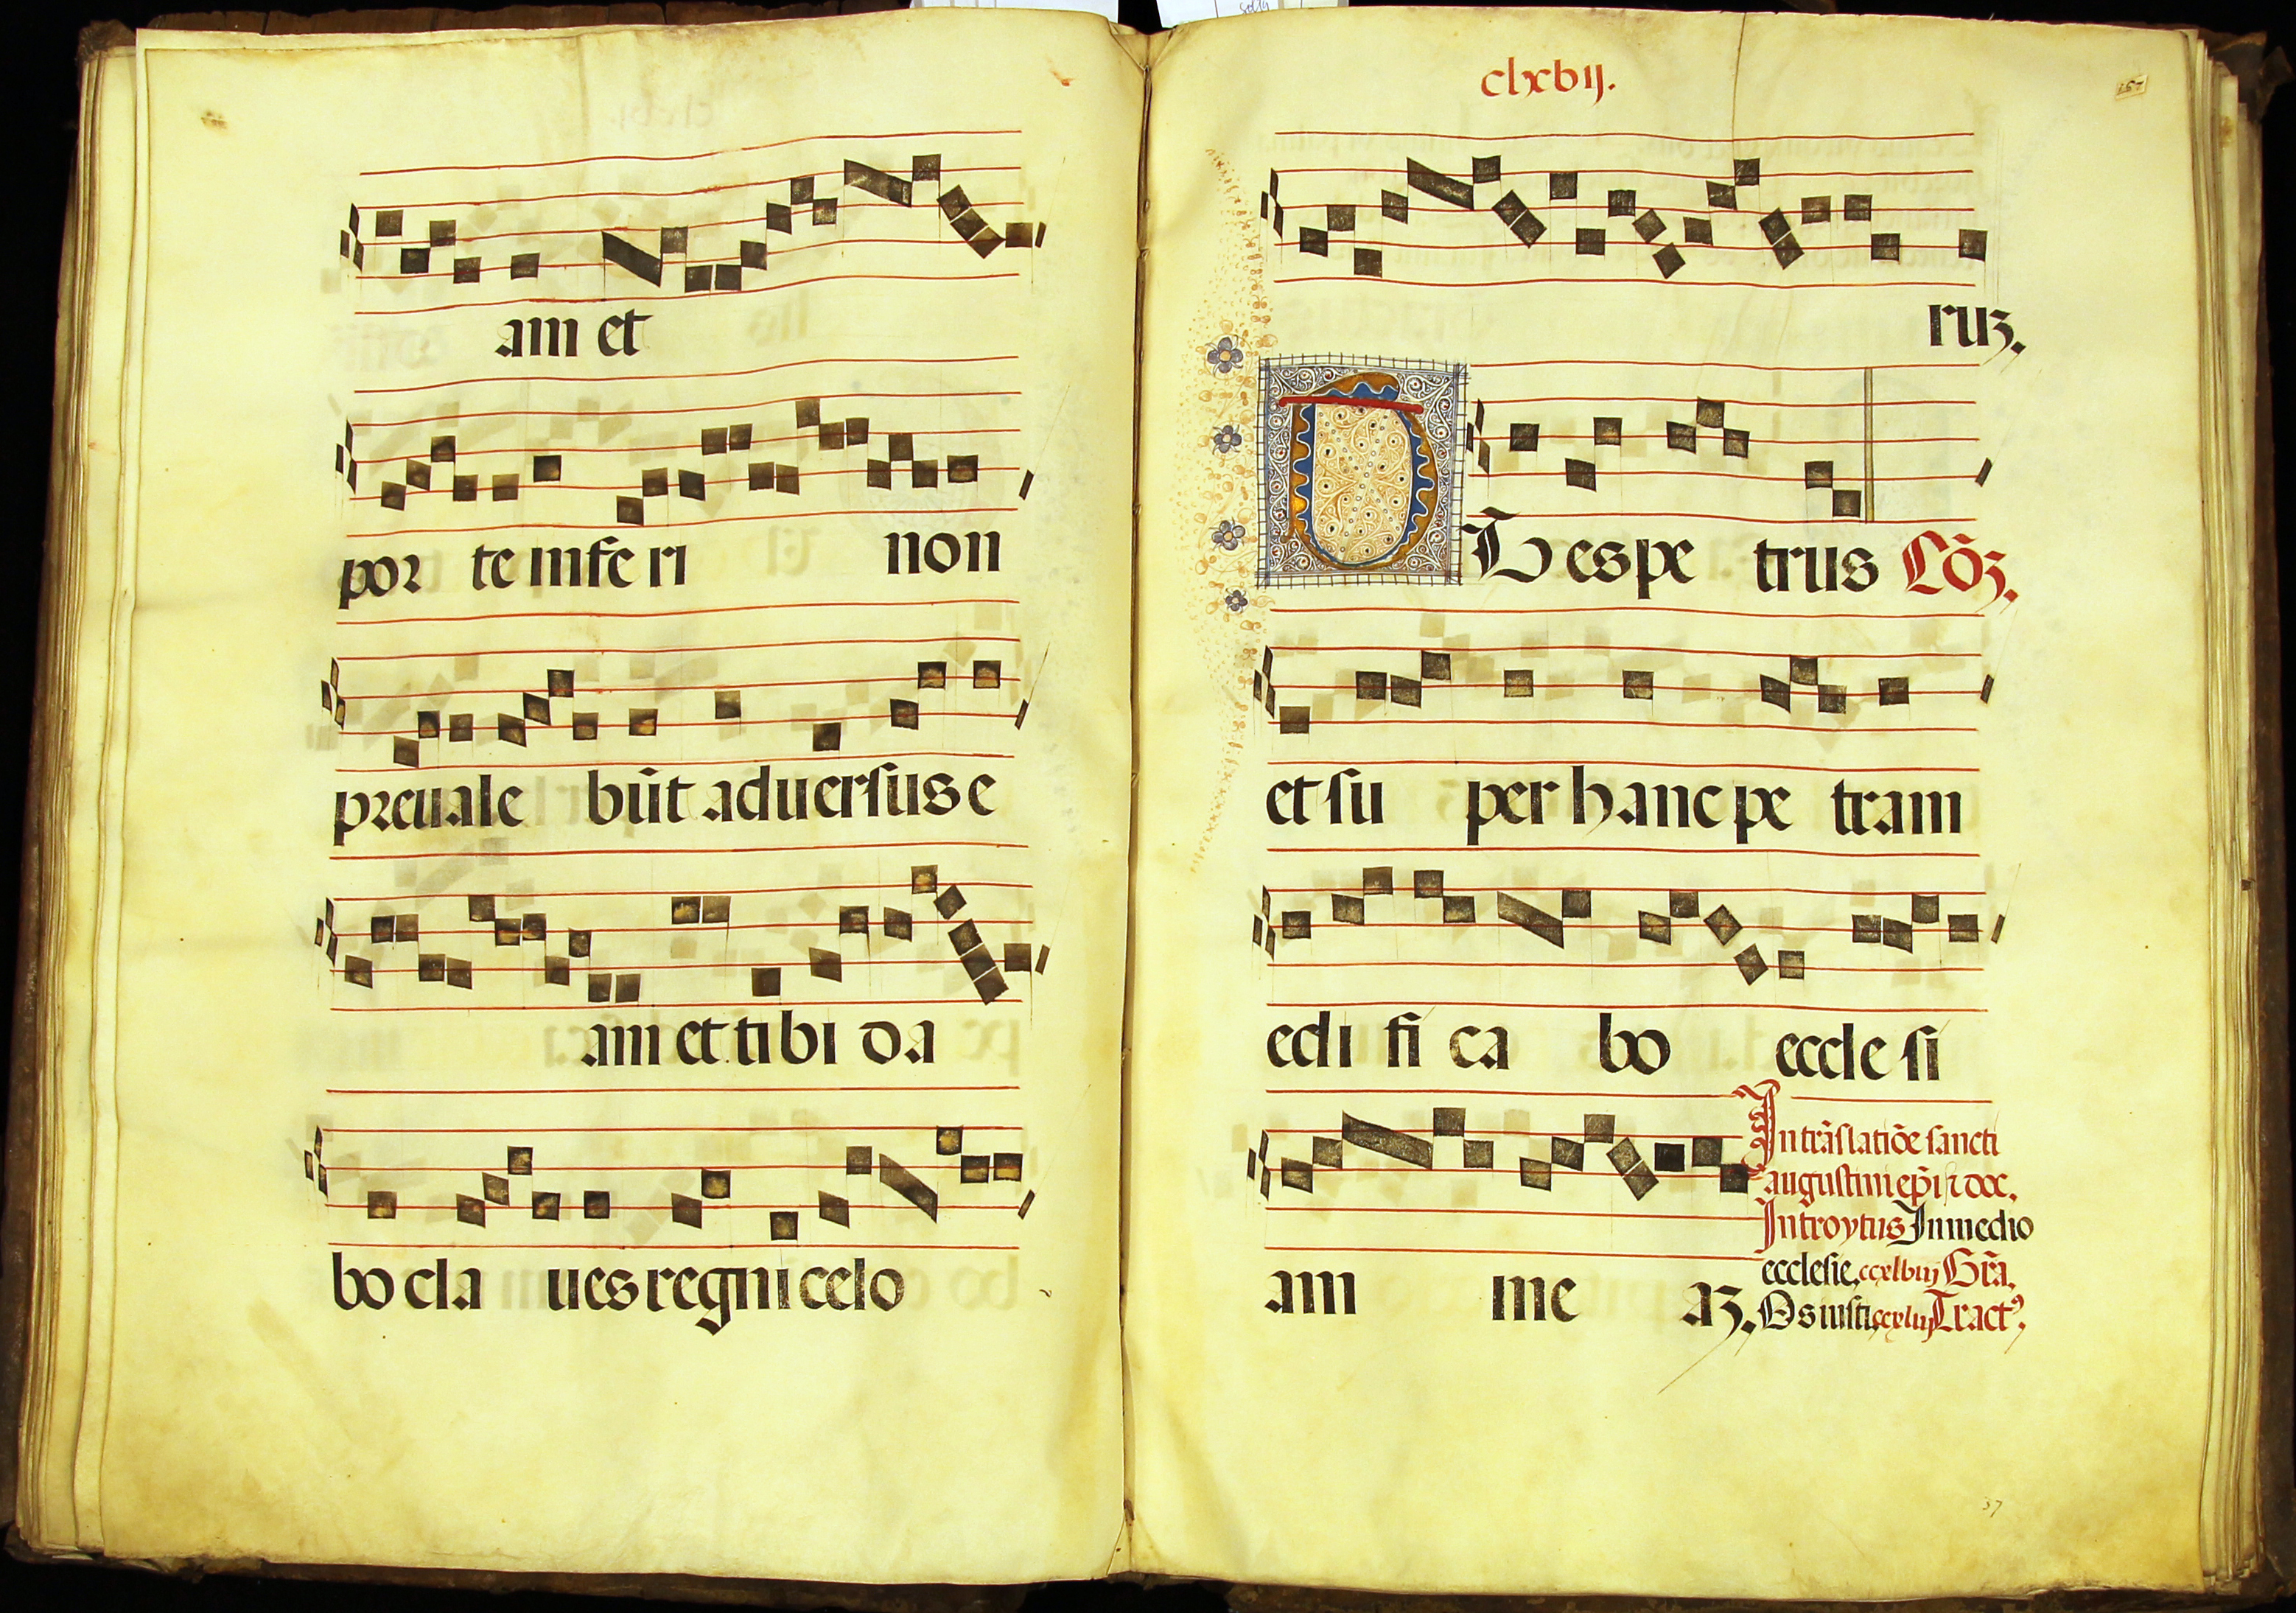 am et
por te infe ri non
preuale bũt aduersus e
am et ti bi da
bo cla ues regni celo
clxvij.
157
ruz.
TV es pe trus Cõz.
et su per hanc pe tram
edi fi ca bo eccle si
am me az.
In trãslatiõe sancti
augustini ep̃i ⁊ doc.
Introytus In medio
ecclesie. ccxlviij Gr̃a.
Os iusti. ccxliij Tractꝰ.
37